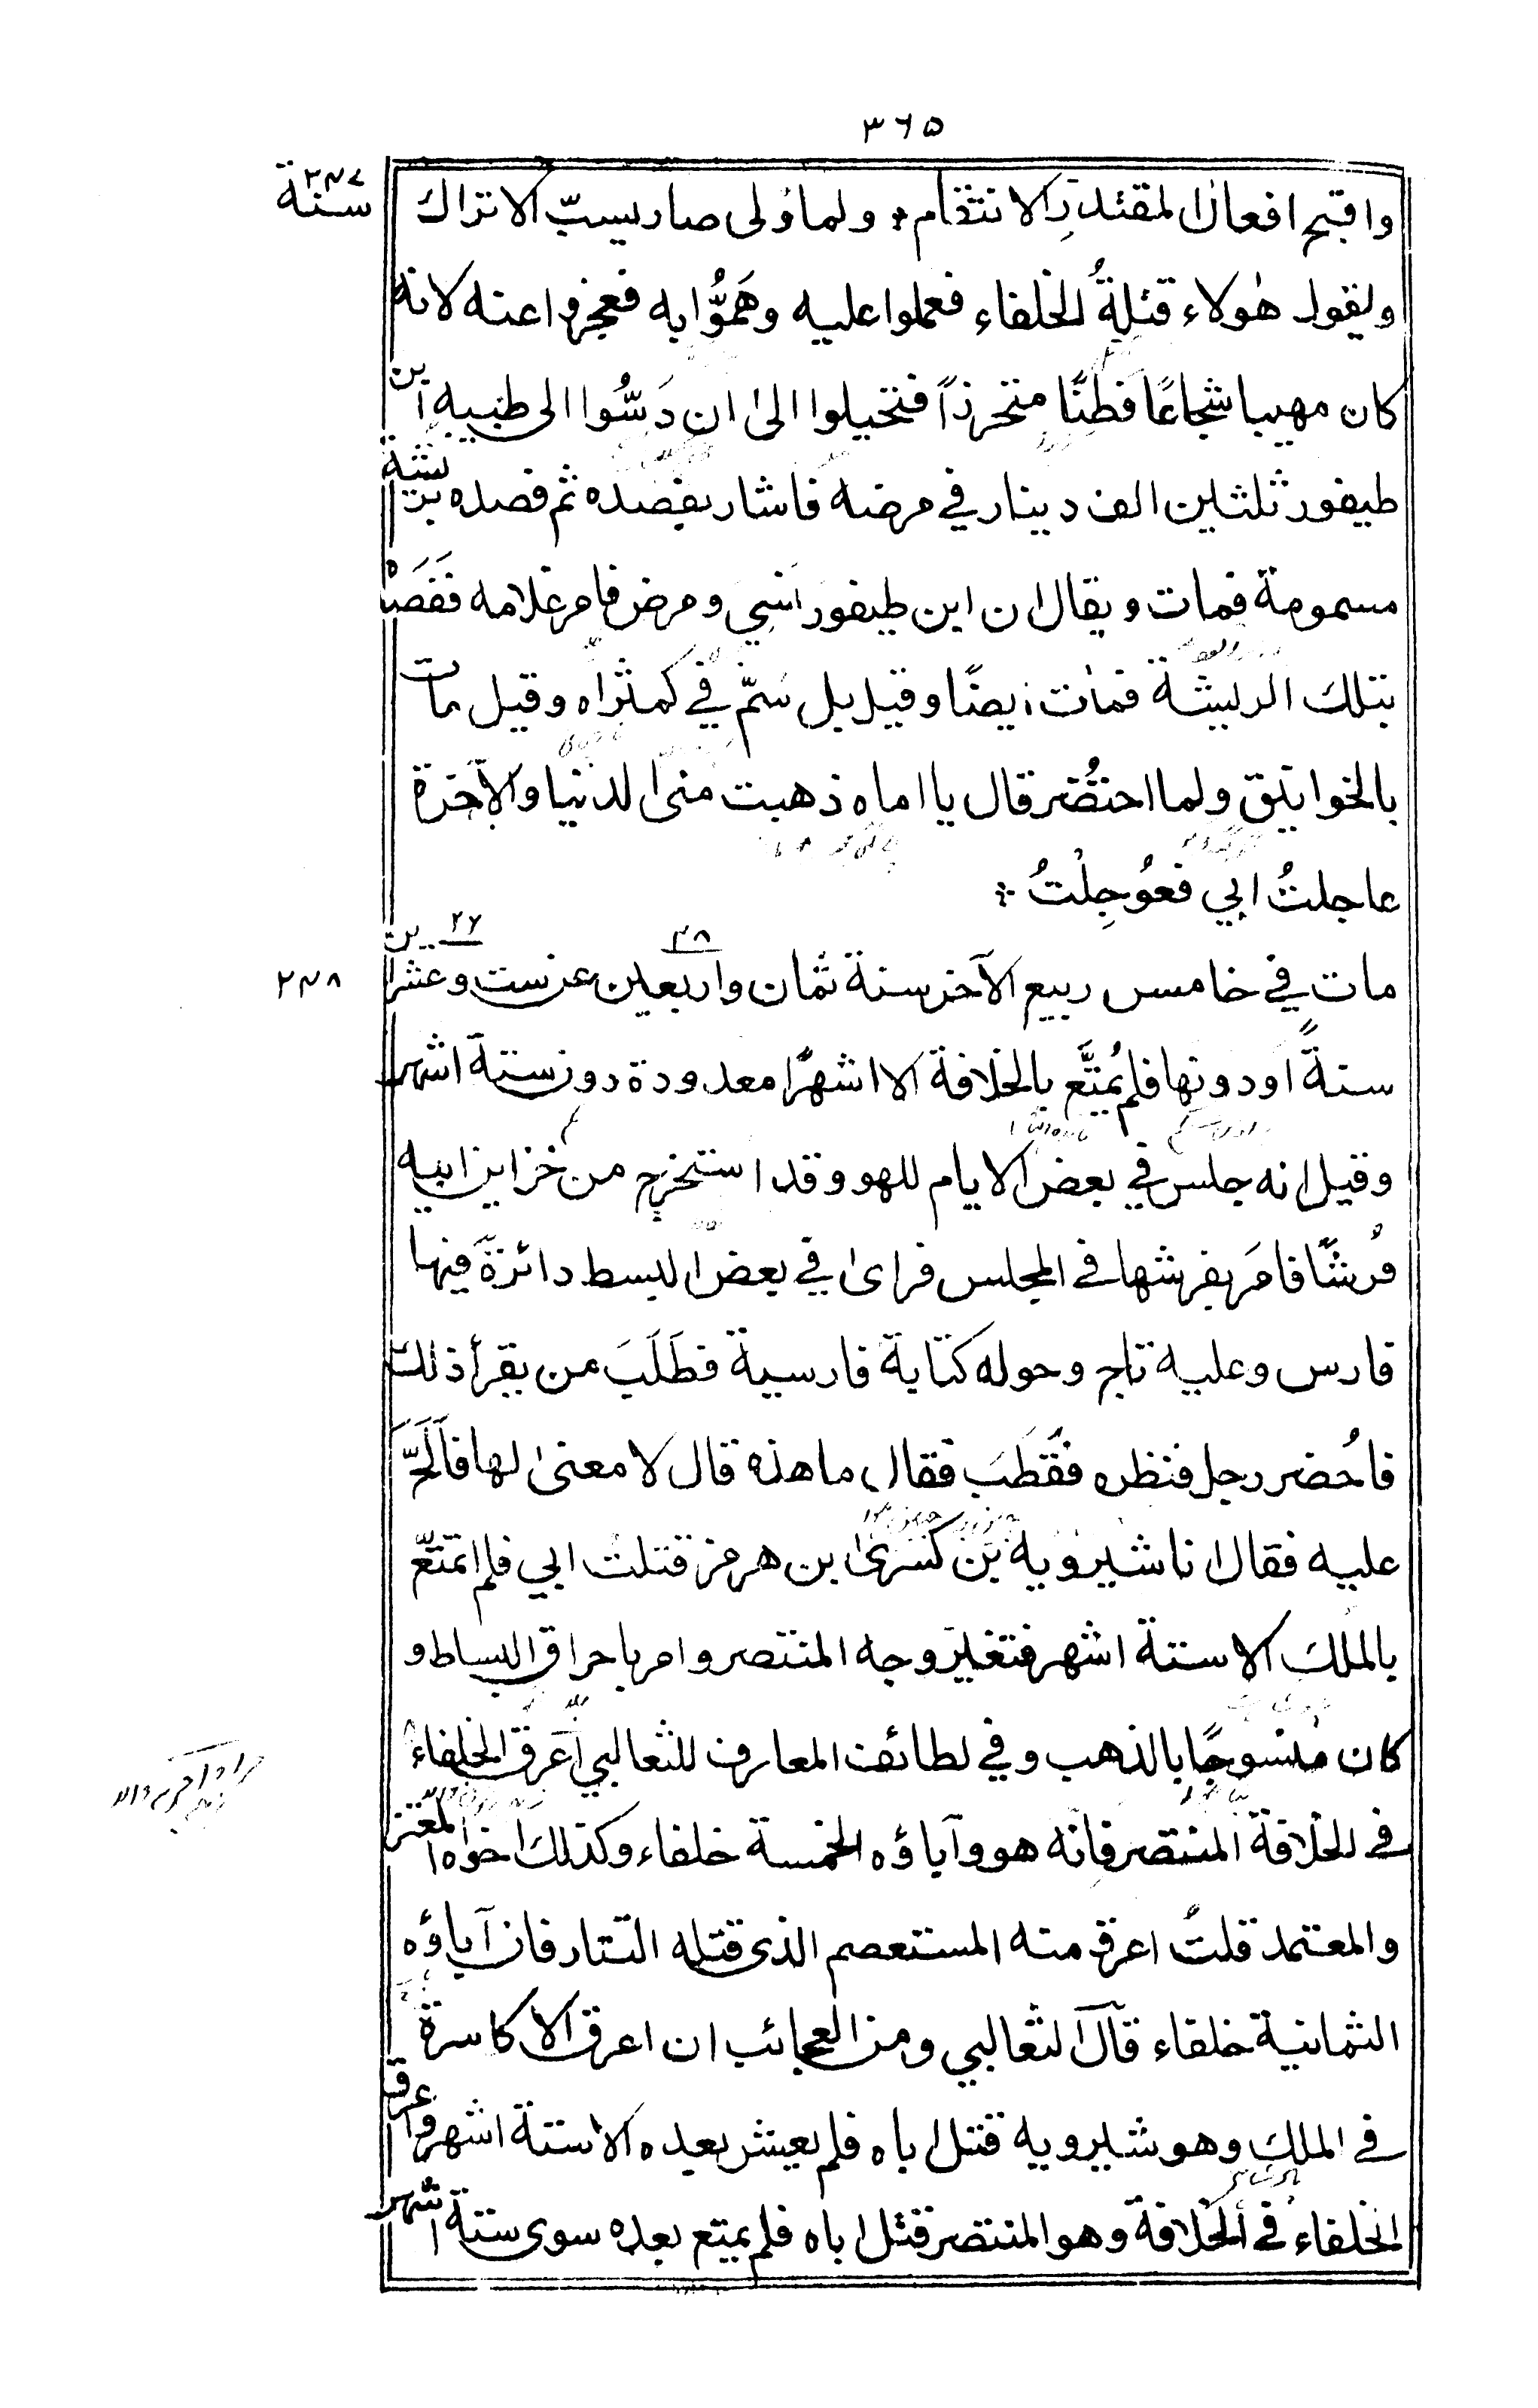 ٣٦٥
سنة ٢٤٧
واقبح افعال المقتدرِ الانتقام ؞ ولما وُلى صار يسبّ الاتراك
ويقول هٰولاء قتلةُ الخلفاء فعملوا عليه وهَمُّوا به فعجزوا عنه لانه
كان مهيبا شجاعًا فطِنًا متحرزاً فتحيلوا الىٰ ان دَسُّوا الى طبيبه ابن
طيفور ثلثين الف دينار في مرضه فاشار بفصده ثم فصده بريشة
مسمومة فمات ويقال ان ابن طيفور نسِي ومرض فامر غلامه ففَصَده
بتلك الريشة فمات ايضًا وقيل بل سُمّ في كمثراه وقيل مات
بالخوانيق ولما احتُضر قال يا اماه ذهبت منى الدنيا والآخرة
عاجلتُ ابي فعُوجِلْتُ ؞
مات في خامس ربيع الآخر سنة ثمان واربعين عن ست وعشرين
٢٤٨
٤٨
٢٦
سنةً اودونها فلم يُمتَّع بالخلافة الا اشهرًا معدودة دون ستة اشهر
وقيل انه جلس في بعض الايام للهو وقد استخرج من خزاين ابيه
فُرشًا فامَر بفرشها في المجلس فراىٰ في بعض البسط دائرةً فيها
فارس وعليه تاج وحوله كتابة فارسية فطَلَبَ من يقرأ ذلك
فاُحضر رجل فنظره فقَطَبَ فقال ما هذه قال لا معنىٰ لها فاَلَحَّ
عليه فقال انا شيرويه بن كسرىٰ بن هرمز قتلتُ ابي فلم اتمتّع
بالملك الا ستة اشهر فتغير وجه المنتصر وامر باحراق البساط و
كان منسوجًا بالذهب وفي لطائف المعارف للثعالبي اَعرق الخلفاء
في الخلافة المنتصر فانه هو وآباؤه الخمسة خلفاء وكذلك اخواه المعتز
والمعتمد قلتُ اعرق منه المستعصم الذى قتله التتار فان آباؤه
الثمانية خلفاء قال الثعالبي ومن العجائب ان اعرق الاكاسرة
في الملك وهو شيرويه قتل اباه فلم يعش بعده الا ستة اشهر واعرق
الخلفاء في الخلافة وهو المنتصر قتل اباه فلم يمتع بعده سوى ستة اشهر